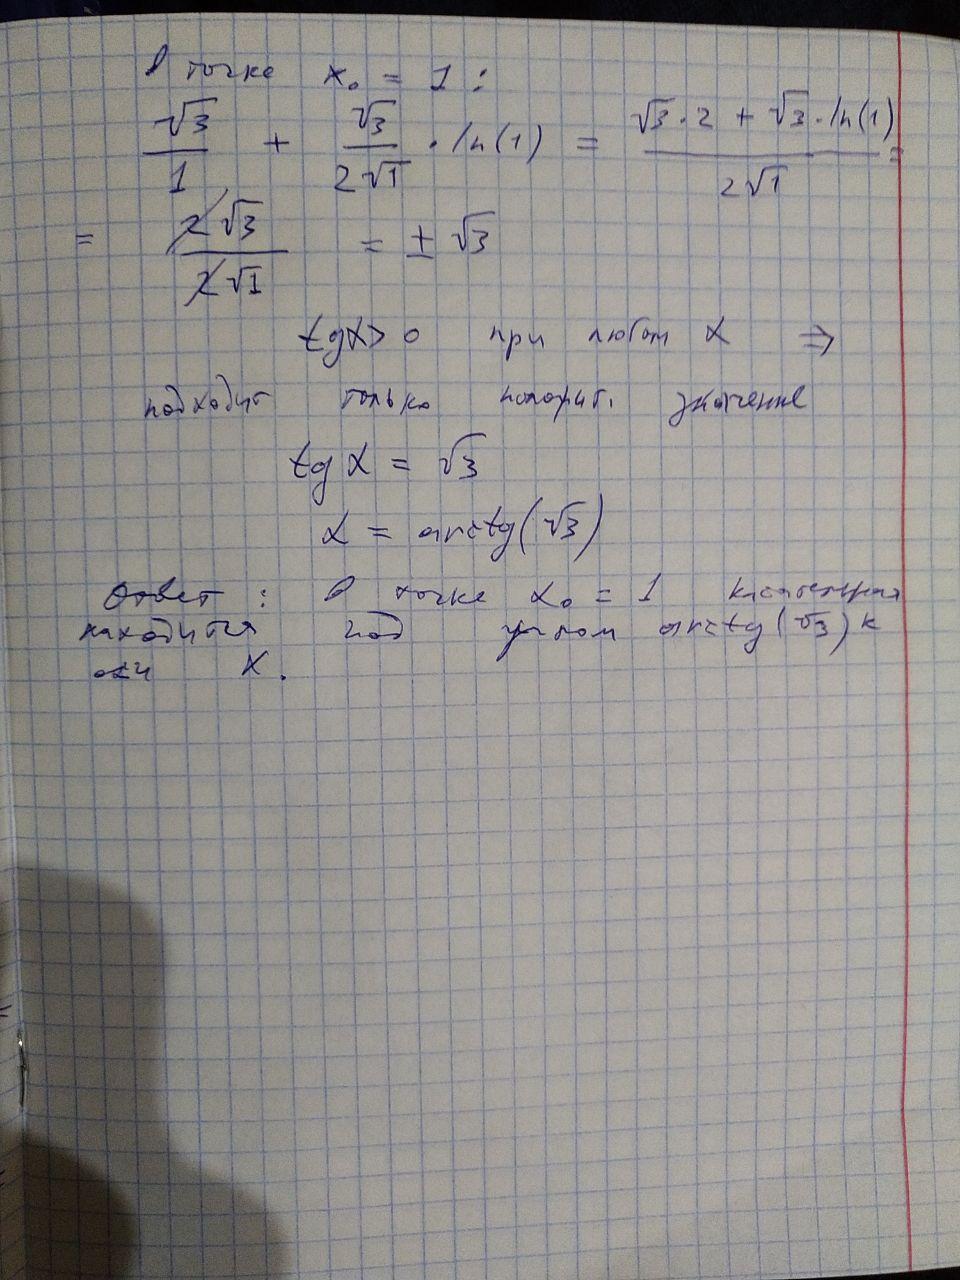 В точке x₀ = 1 :
√3/1 + √3/(2√1) · ln(1) = (√3 · 2 + √3 · ln(1))/(2√1) =
= 2√3/(2√1) = ± √3
tgα > 0 при любом α ⇒
подходит только полож. значение
tg α = √3
α = arctg(√3)
Ответ : В точке x₀ = 1 касательная
находится под углом arctg(√3) к
оси X.